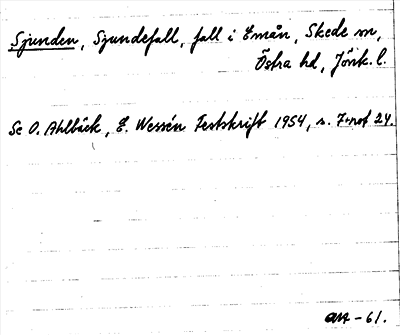 Sjunden, Sjundefall, fall i Emån, Skede sn,
Östra hd, Jönk. l.
Se O. Ahlbäck, E. Wessén Festskrift 1954, s. 7 not 24.
-61.